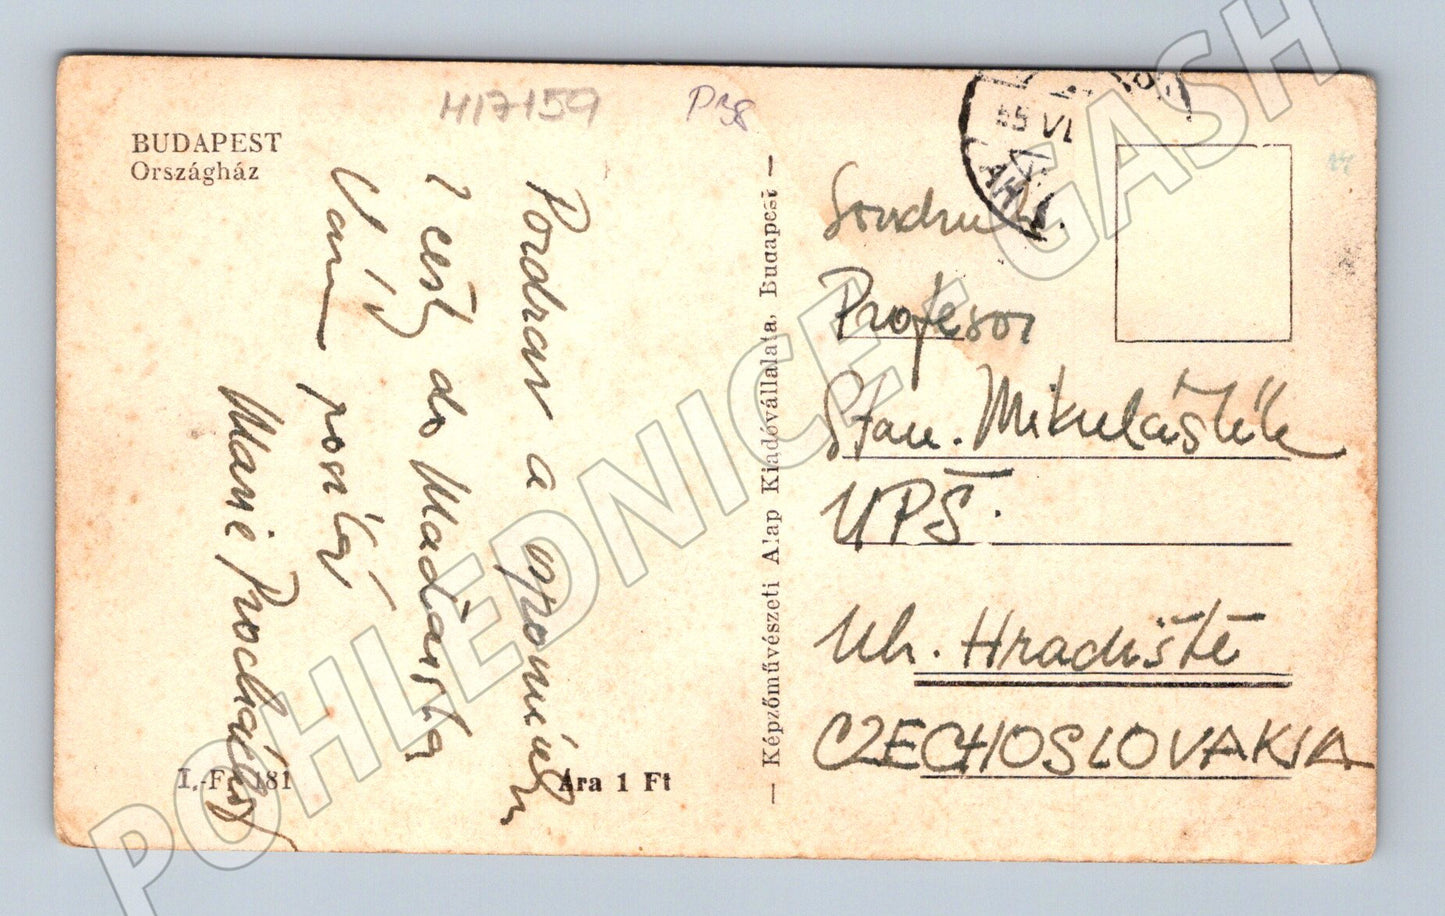 H17159
P38
BUDAPEST
Országház
Pozdrav a vzpomínku
z cesty do Maďarska
Vám
posílají
Marie Procházková
I.-Fr 181
Ára 1 Ft
— Képzőművészeti Alap Kiadóvállalata, Budapest —
55 VI
Soudruh
Profesor
Stan. Mikuláštík
UPŠ.
Uh. Hradiště
CZECHOSLOVAKIA
POHLEDNICE - GASH